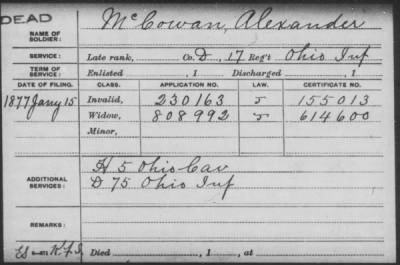 DEAD
NAME OF SOLDIER: McCowan, Alexander
SERVICE: Late rank, Co. D, 17 Reg't Ohio Inf
TERM OF SERVICE: Enlisted , 1 Discharged , 1
DATE OF FILING. CLASS. APPLICATION NO. LAW. CERTIFICATE NO.
1877 Jany 15 Invalid, 230163 J 155013
Widow, 808992 J 614600
Minor,
ADDITIONAL SERVICES: H 5 Ohio Cav
D 75 Ohio Inf
REMARKS:
Died , 1 , at